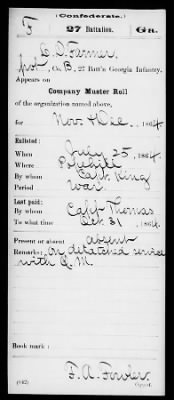 (Confederate.)
F 27 Battalion Ga.
C. D. Farmer
Pvt, Co. B, 27 Batt'n Georgia Infantry.
Appears on
Company Muster Roll
of the organization named above,
for Nov & Dec, 1864.
Enlisted:
When July 25, 1864.
Where
By whom Capt. King
Period War
Last paid:
By whom Capt Thomas
To what time Oct 31, 1864.
Present or absent absent
Remarks: On detatched service
with Q. M.
Book mark:
(642) F. A. Fowler
Copyist.